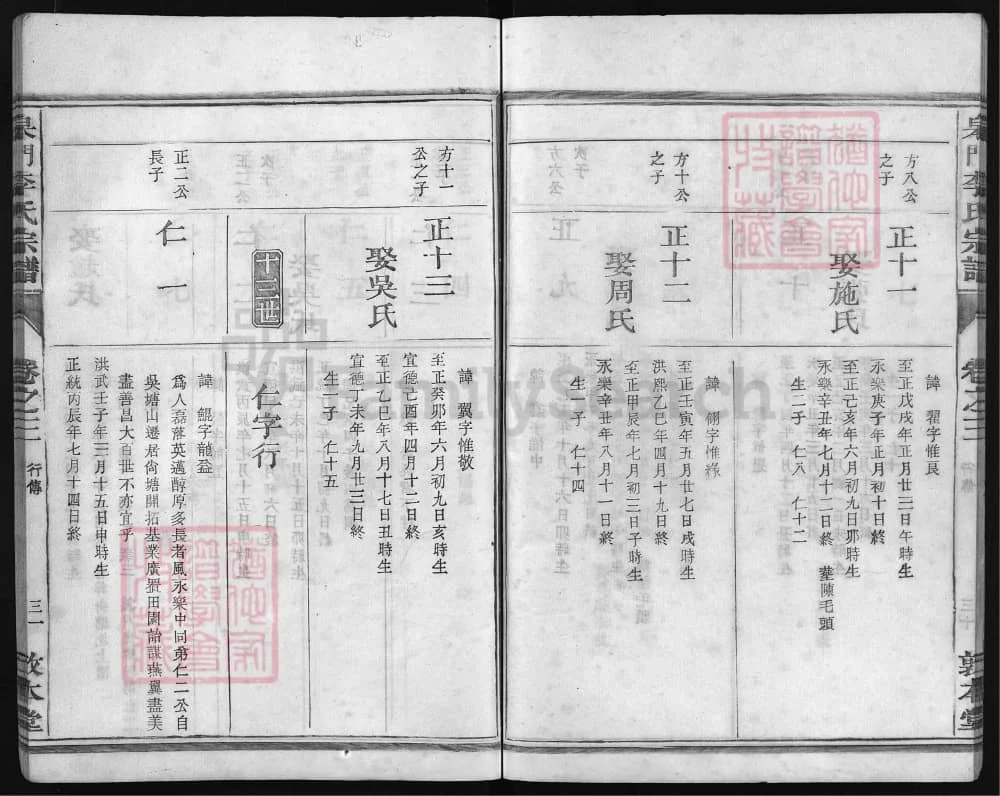 方八公
之子
正十一
娶施氏
諱 翟字惟良
至正戊戌年正月廿三日午時生
永樂庚子年正月初十日終
至正己亥年六月初九日卯時生
永樂辛丑年七月十一日終 葬陳毛頭
生二子 仁八 仁十二
方十公
之子
正十二
娶周氏
諱 字惟
至正壬寅年五月廿七日戌時生
洪熙乙巳年四月十九日終
至正甲辰年七月初三日子時生
永樂辛丑年八月十一日終
生一子 仁十四
方十一
公之子
正十三
娶吳氏
諱 翼字惟敬
至正癸卯年六月初九日亥時生
宣德己酉年四月十二日終
至正乙巳年八月十七日丑時生
宣德丁未年九月廿三日終
生一子 仁十五
十三世
仁字行
正二公
長子
仁一
諱 鯤字
為人磊落英邁醇厚多長者風永樂中同弟仁二公自
吳塘山遷居尚塘開拓基業廣置田園詒謀燕翼盡美
盡善昌大百世不亦宜乎
洪武壬子年三月十五日申時生
正統丙辰年七月十四日終
泉門李氏宗譜
卷之三
行傳
三一
敦本堂